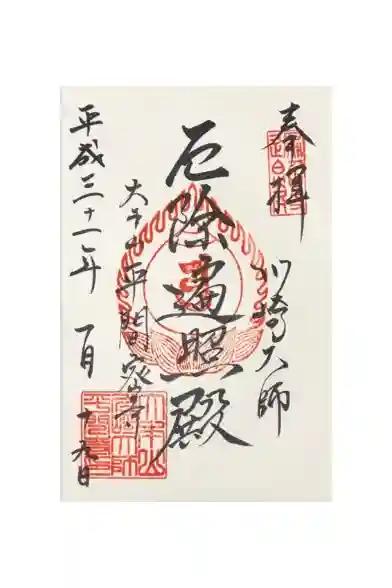 奉拝
川崎大師
厄除遍照殿
大本山
平間寺
平成三十一年一月十九日